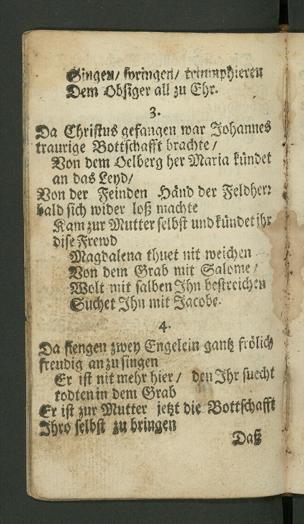 Singen/ springen/ triumphieren
Dem Obsiger all zu Ehr.
3.
Da Christus gefangen war Johannes
traurige Bottschafft brachte/
Von dem Oelberg her Maria kündet
an das Leyd/
Von der Feinden Händ der Feldherr
bald sich wider loß machte
Kam zur Mutter selbst und kündet ihr
dise Frewd
Magdalena thuet nit weichen
Von dem Grab mit Salome/
Wolt mit salben Ihn bestreichen
Suchet Ihn mit Jacobe.
4.
Da fiengen zwey Engelein gantz frölich
freudig an zu singen
Er ist nit mehr hier/ den Ihr suecht
todten in dem Grab
Er ist zur Mutter jetzt die Bottschafft
Ihro selbst zu bringen
Daß